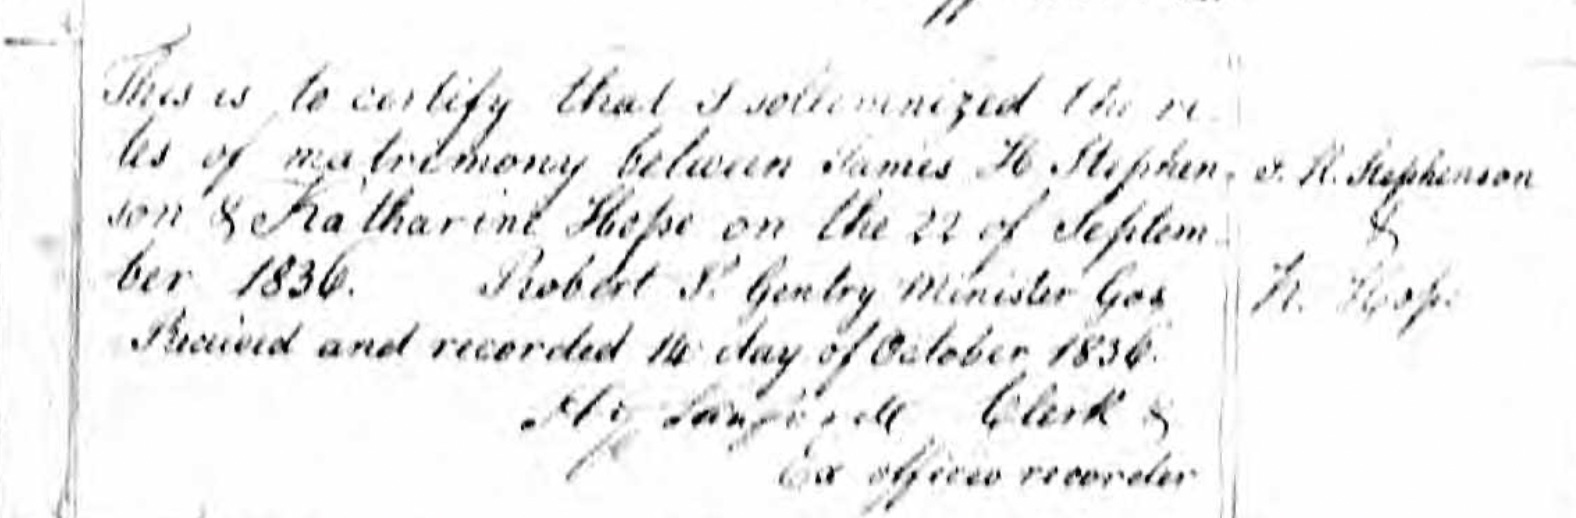 This is to certify that I sollemnized the ri-
tes of matrimony between James H Stephen-
son & Katharine Hope on the 22 of Septem-
ber 1836. Robert S. Gentry Minister Gos
Received and recorded 14 day of October 1836.
Clerk &
Ex officio recorder
J. H. Stephenson
&
K. Hope